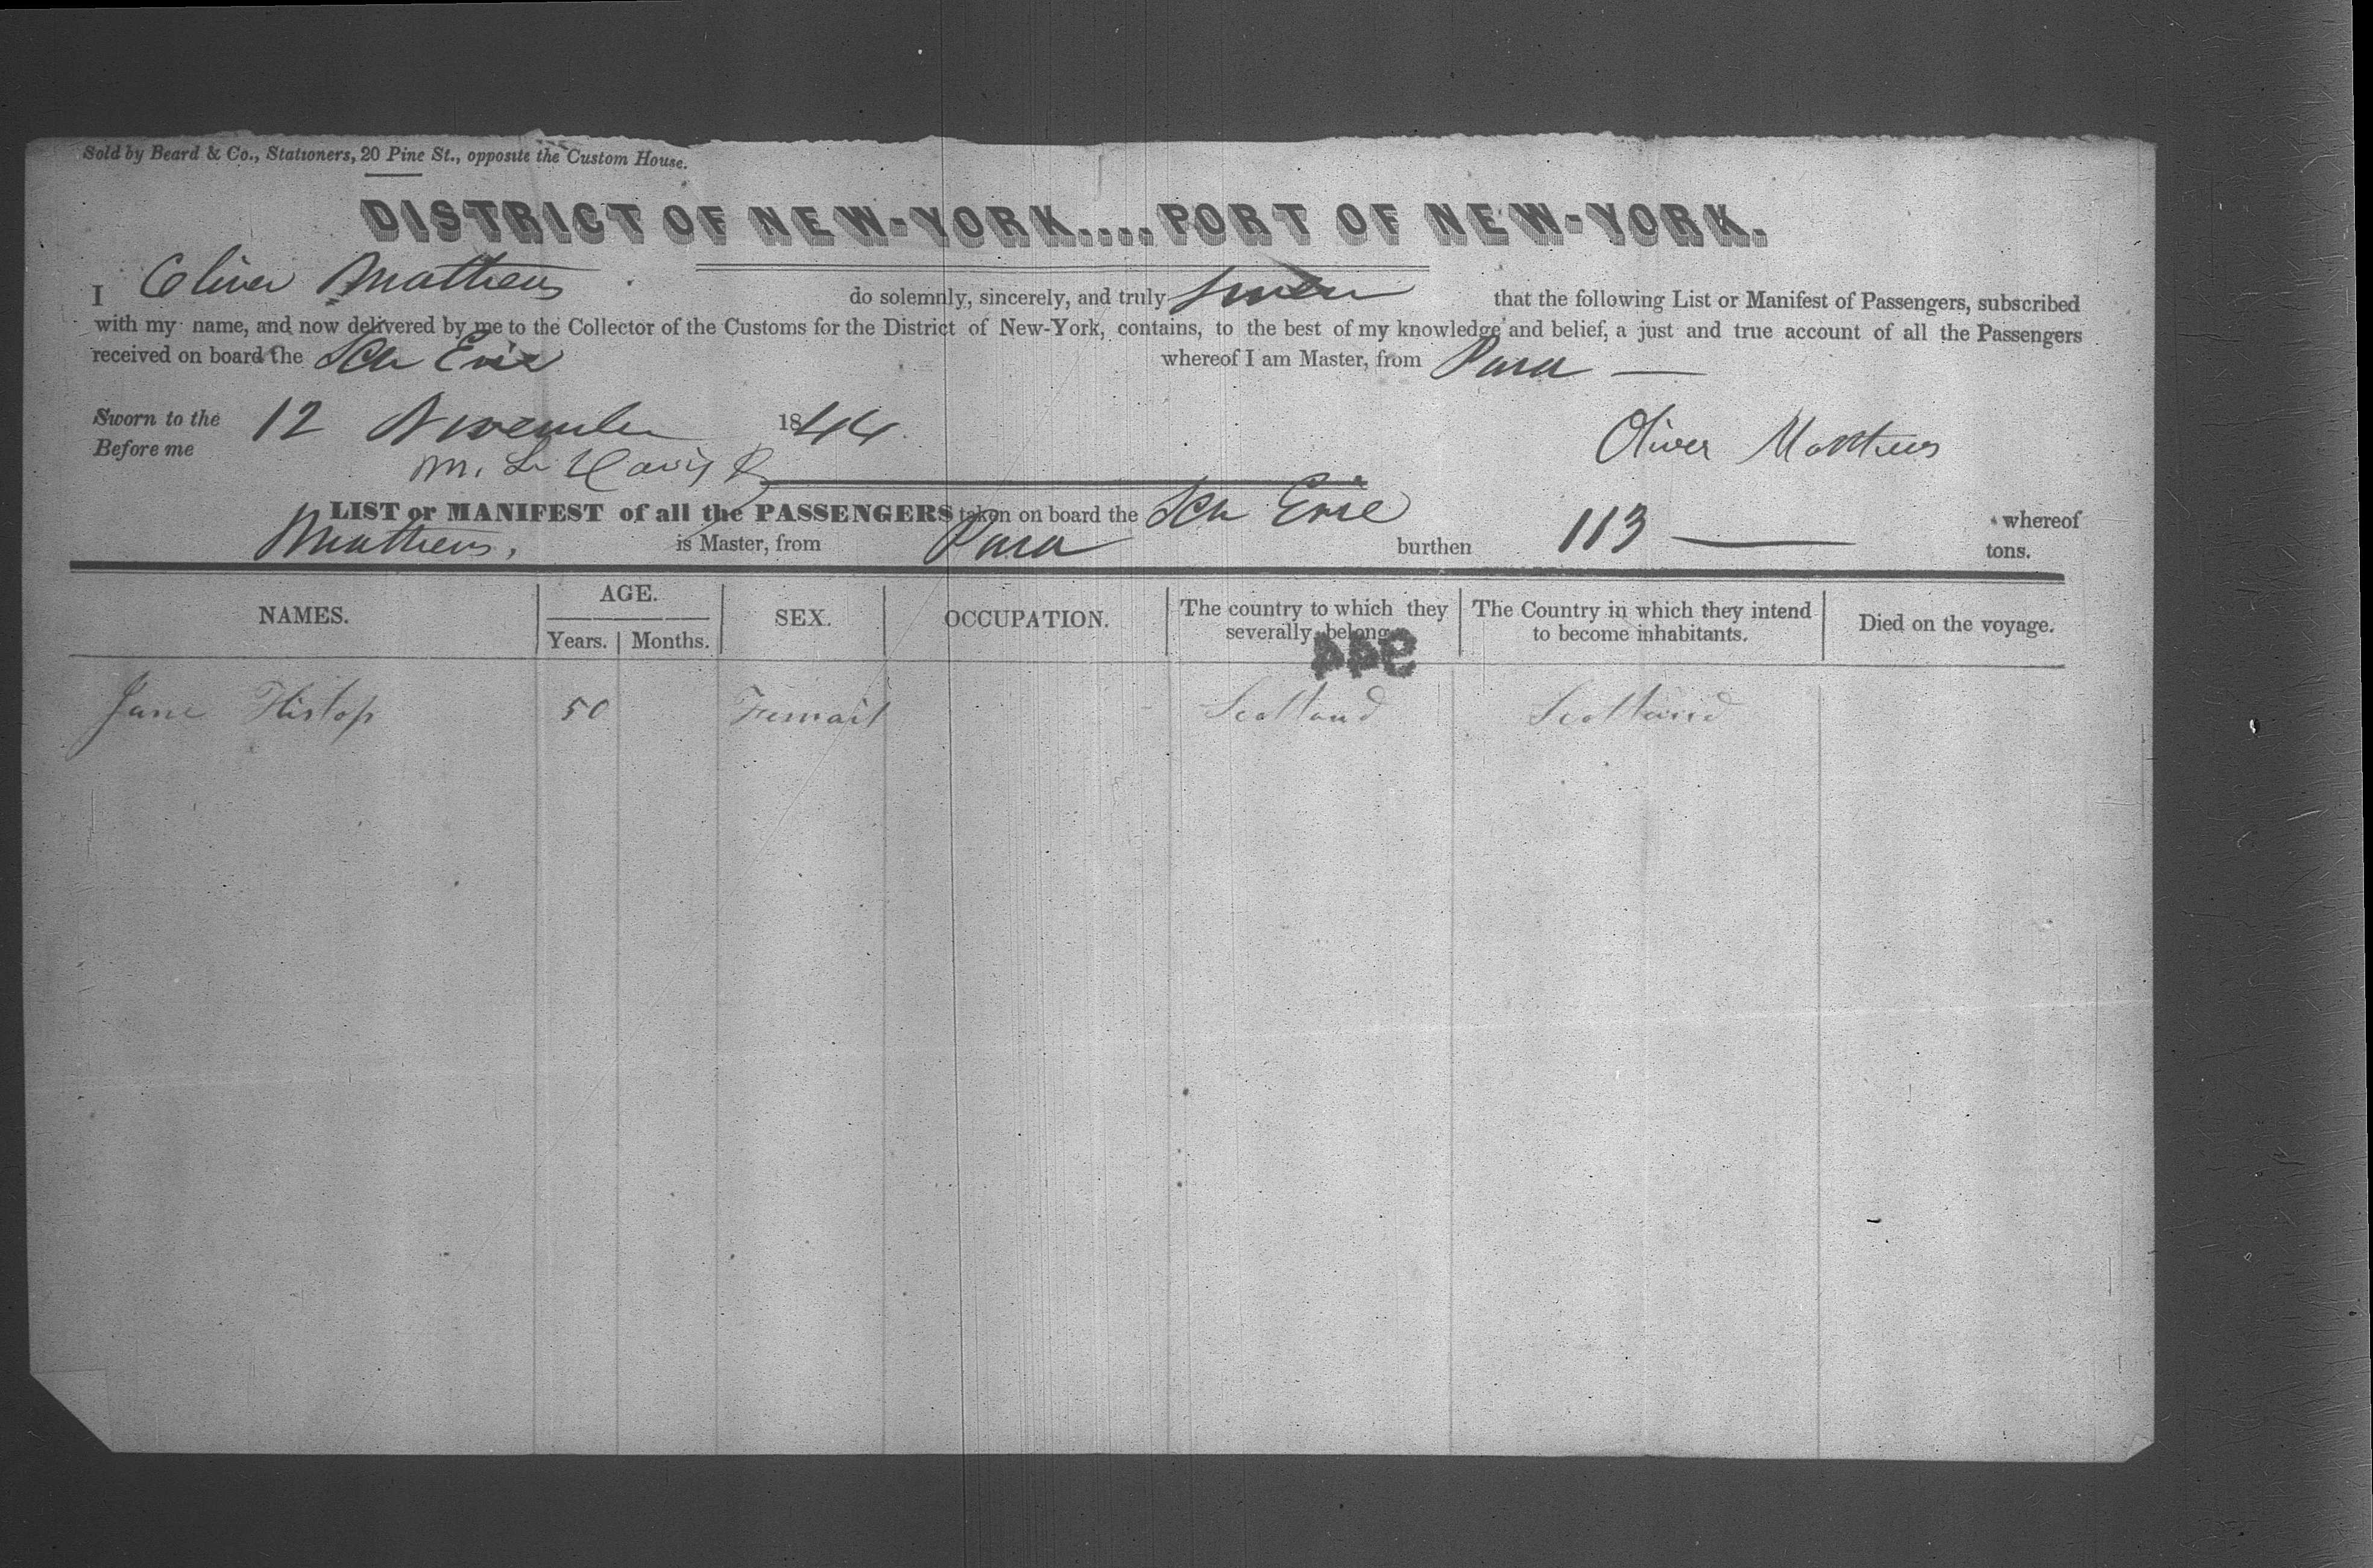 Sold by Beard & Co., Stationers, 20 Pine St., opposite the Custom House.
DISTRICT OF NEW-YORK....PORT OF NEW-YORK.
I Oliver Mathews do solemnly, sincerely, and truly swear that the following List or Manifest of Passengers, subscribed
with my name, and now delivered by me to the Collector of the Customs for the District of New-York, contains, to the best of my knowledge and belief, a just and true account of all the Passengers
received on board the Sch Erie whereof I am Master, from Para —
Sworn to the 12 November 1844
Before me
Oliver Matthews
LIST or MANIFEST of all the PASSENGERS taken on board the Sch Erie whereof
Mathews, is Master, from Para burthen 113 — tons.
NAMES. AGE. SEX. OCCUPATION. The country to which they severally belong. The Country in which they intend to become inhabitants. Died on the voyage.
Years. Months.
944
Jane Hislop 50 Femail Scotland Scotland